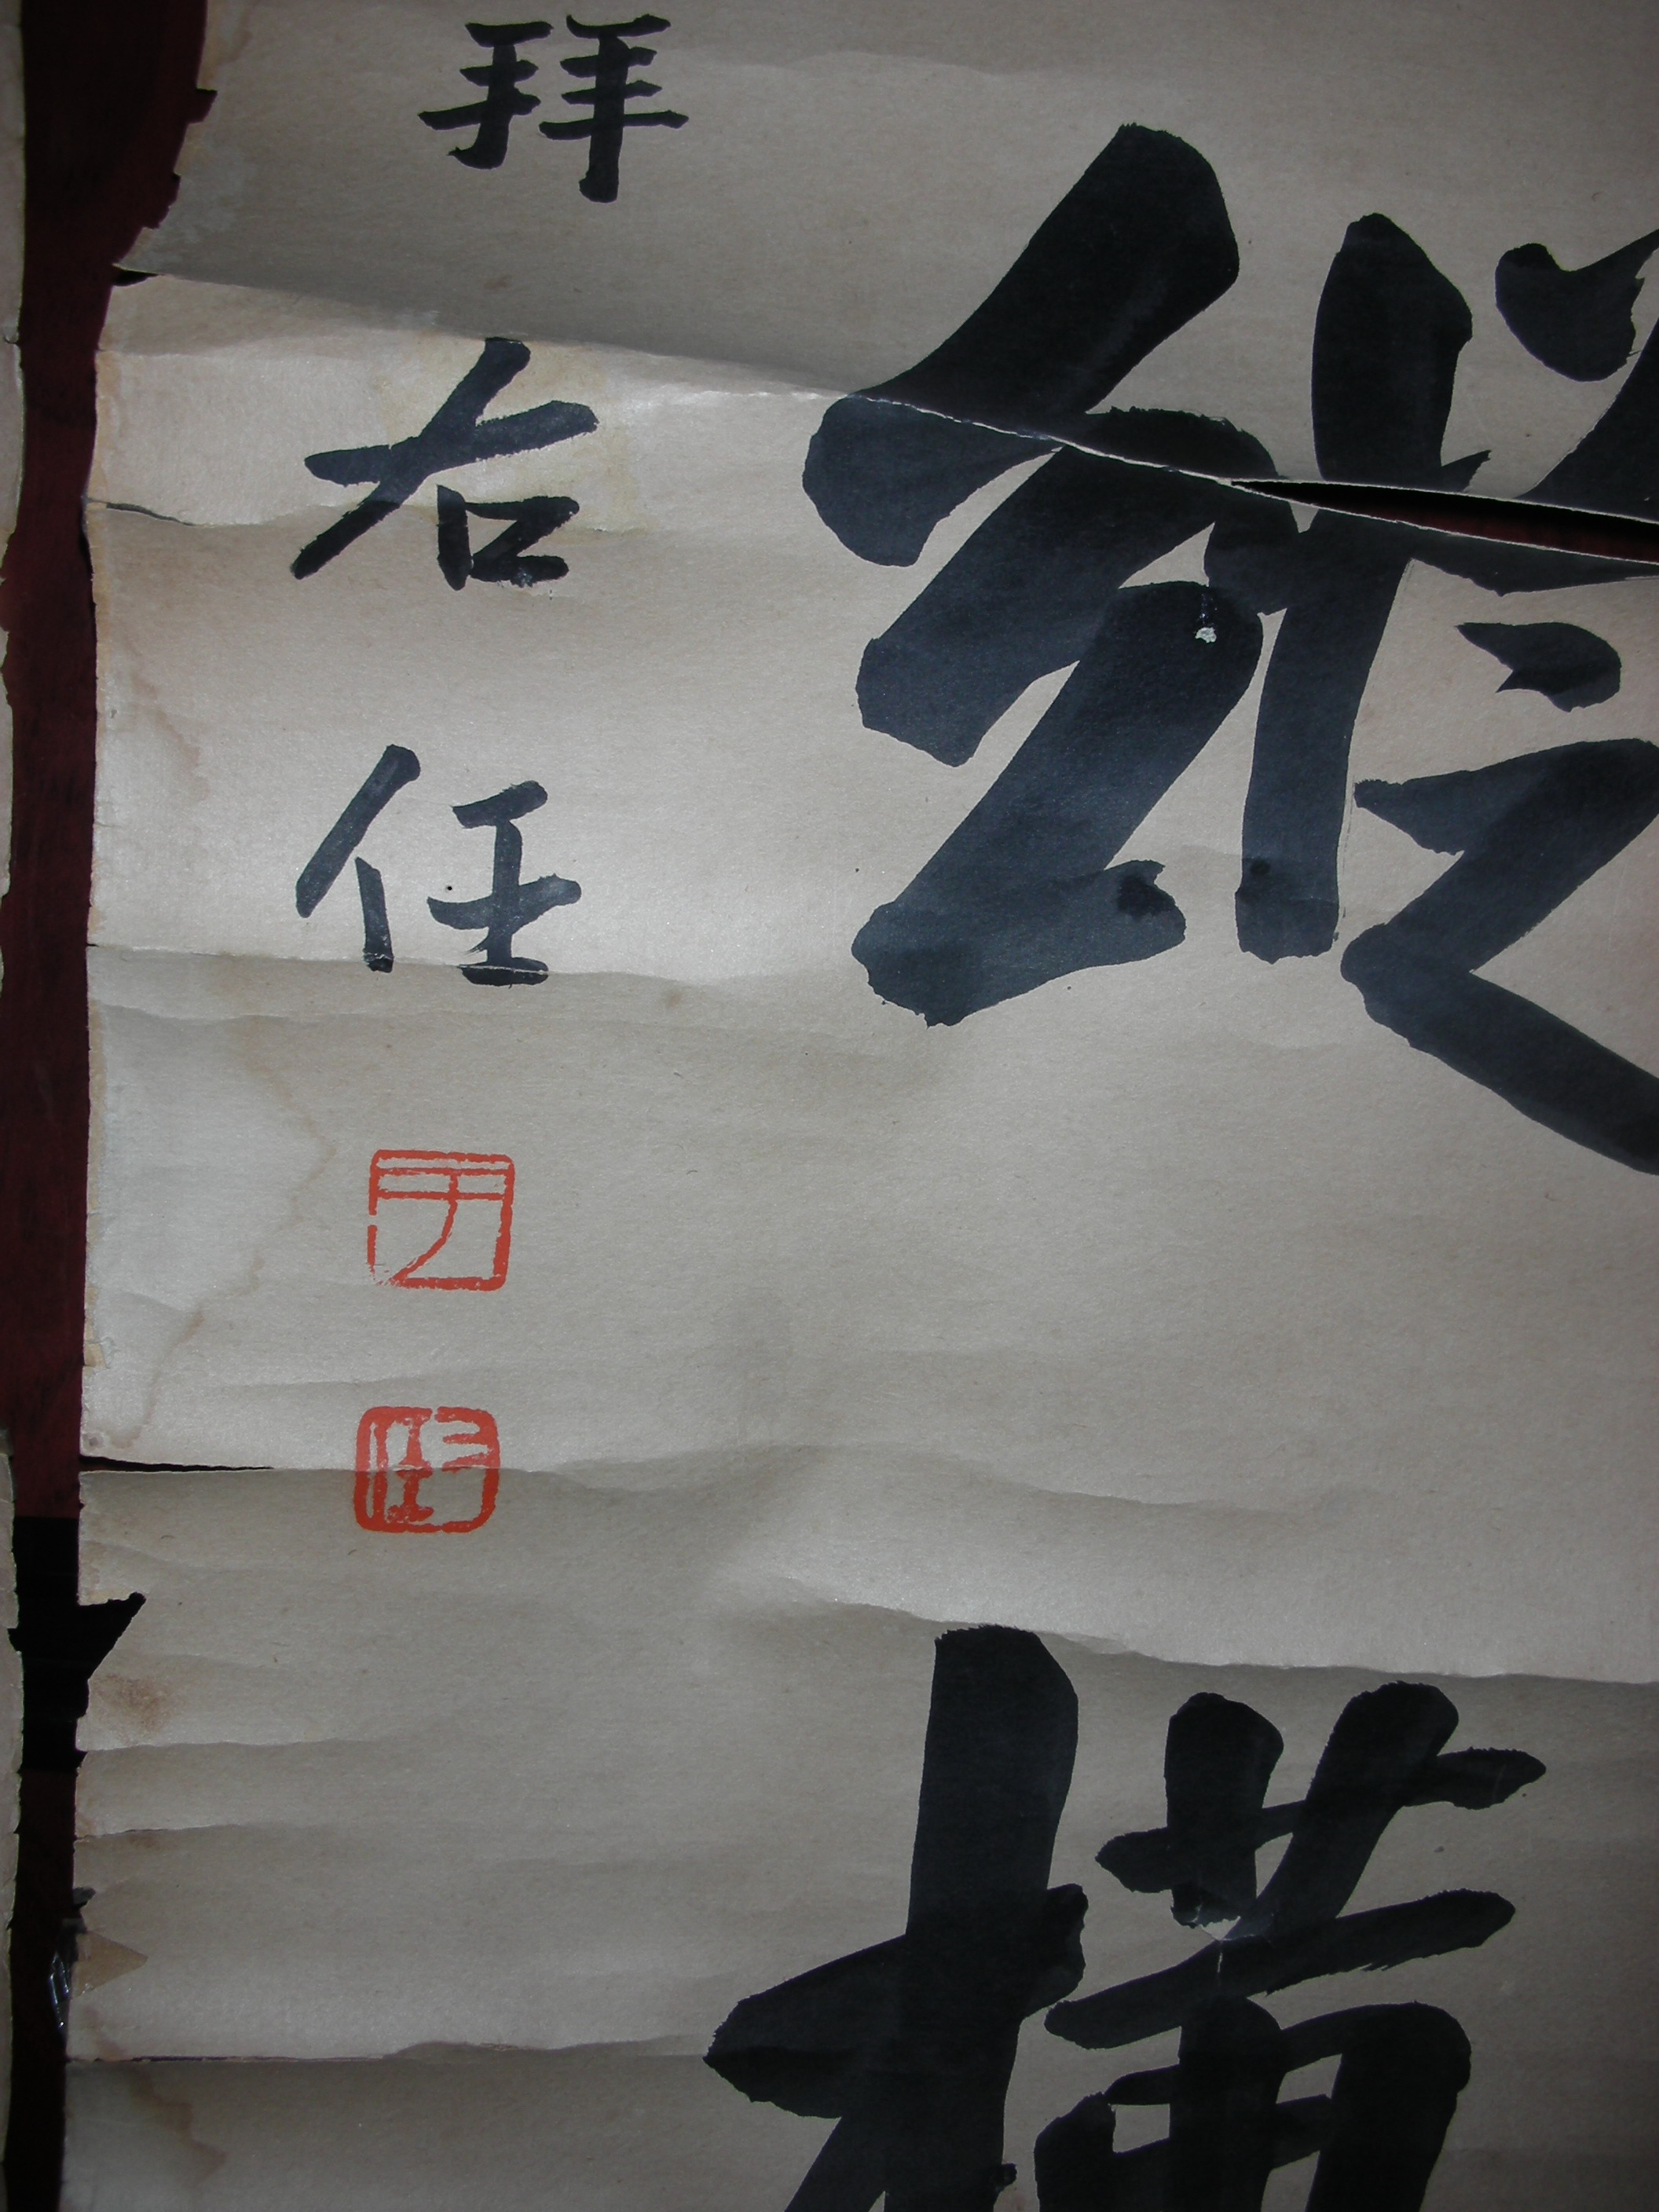 縱橫
拜右任